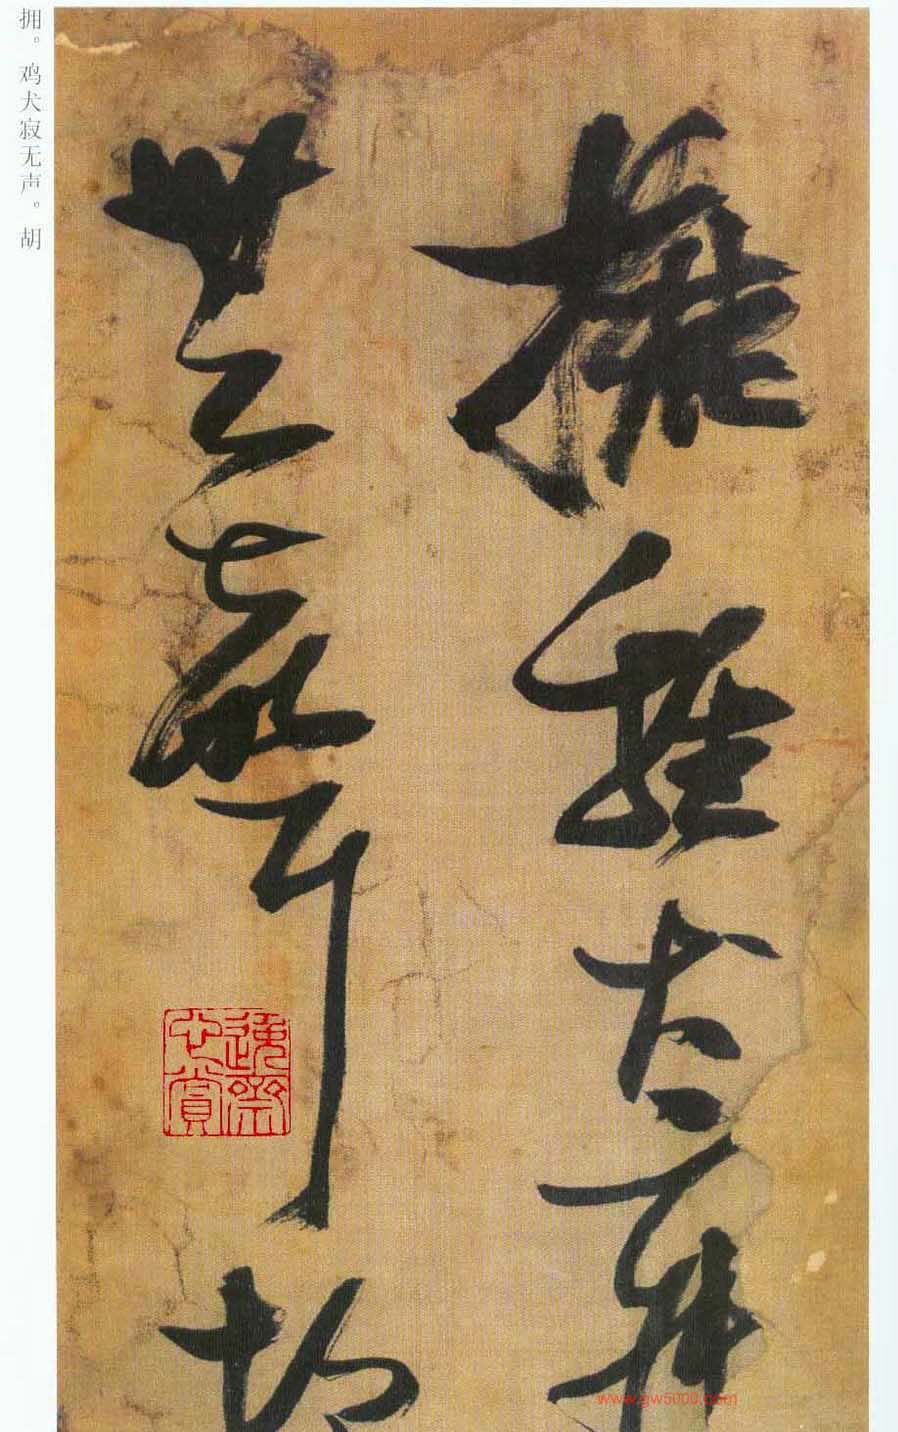 擁雞犬寂
無聲胡
拥。鸡犬寂无声。胡
心賞
www.gw5000.com